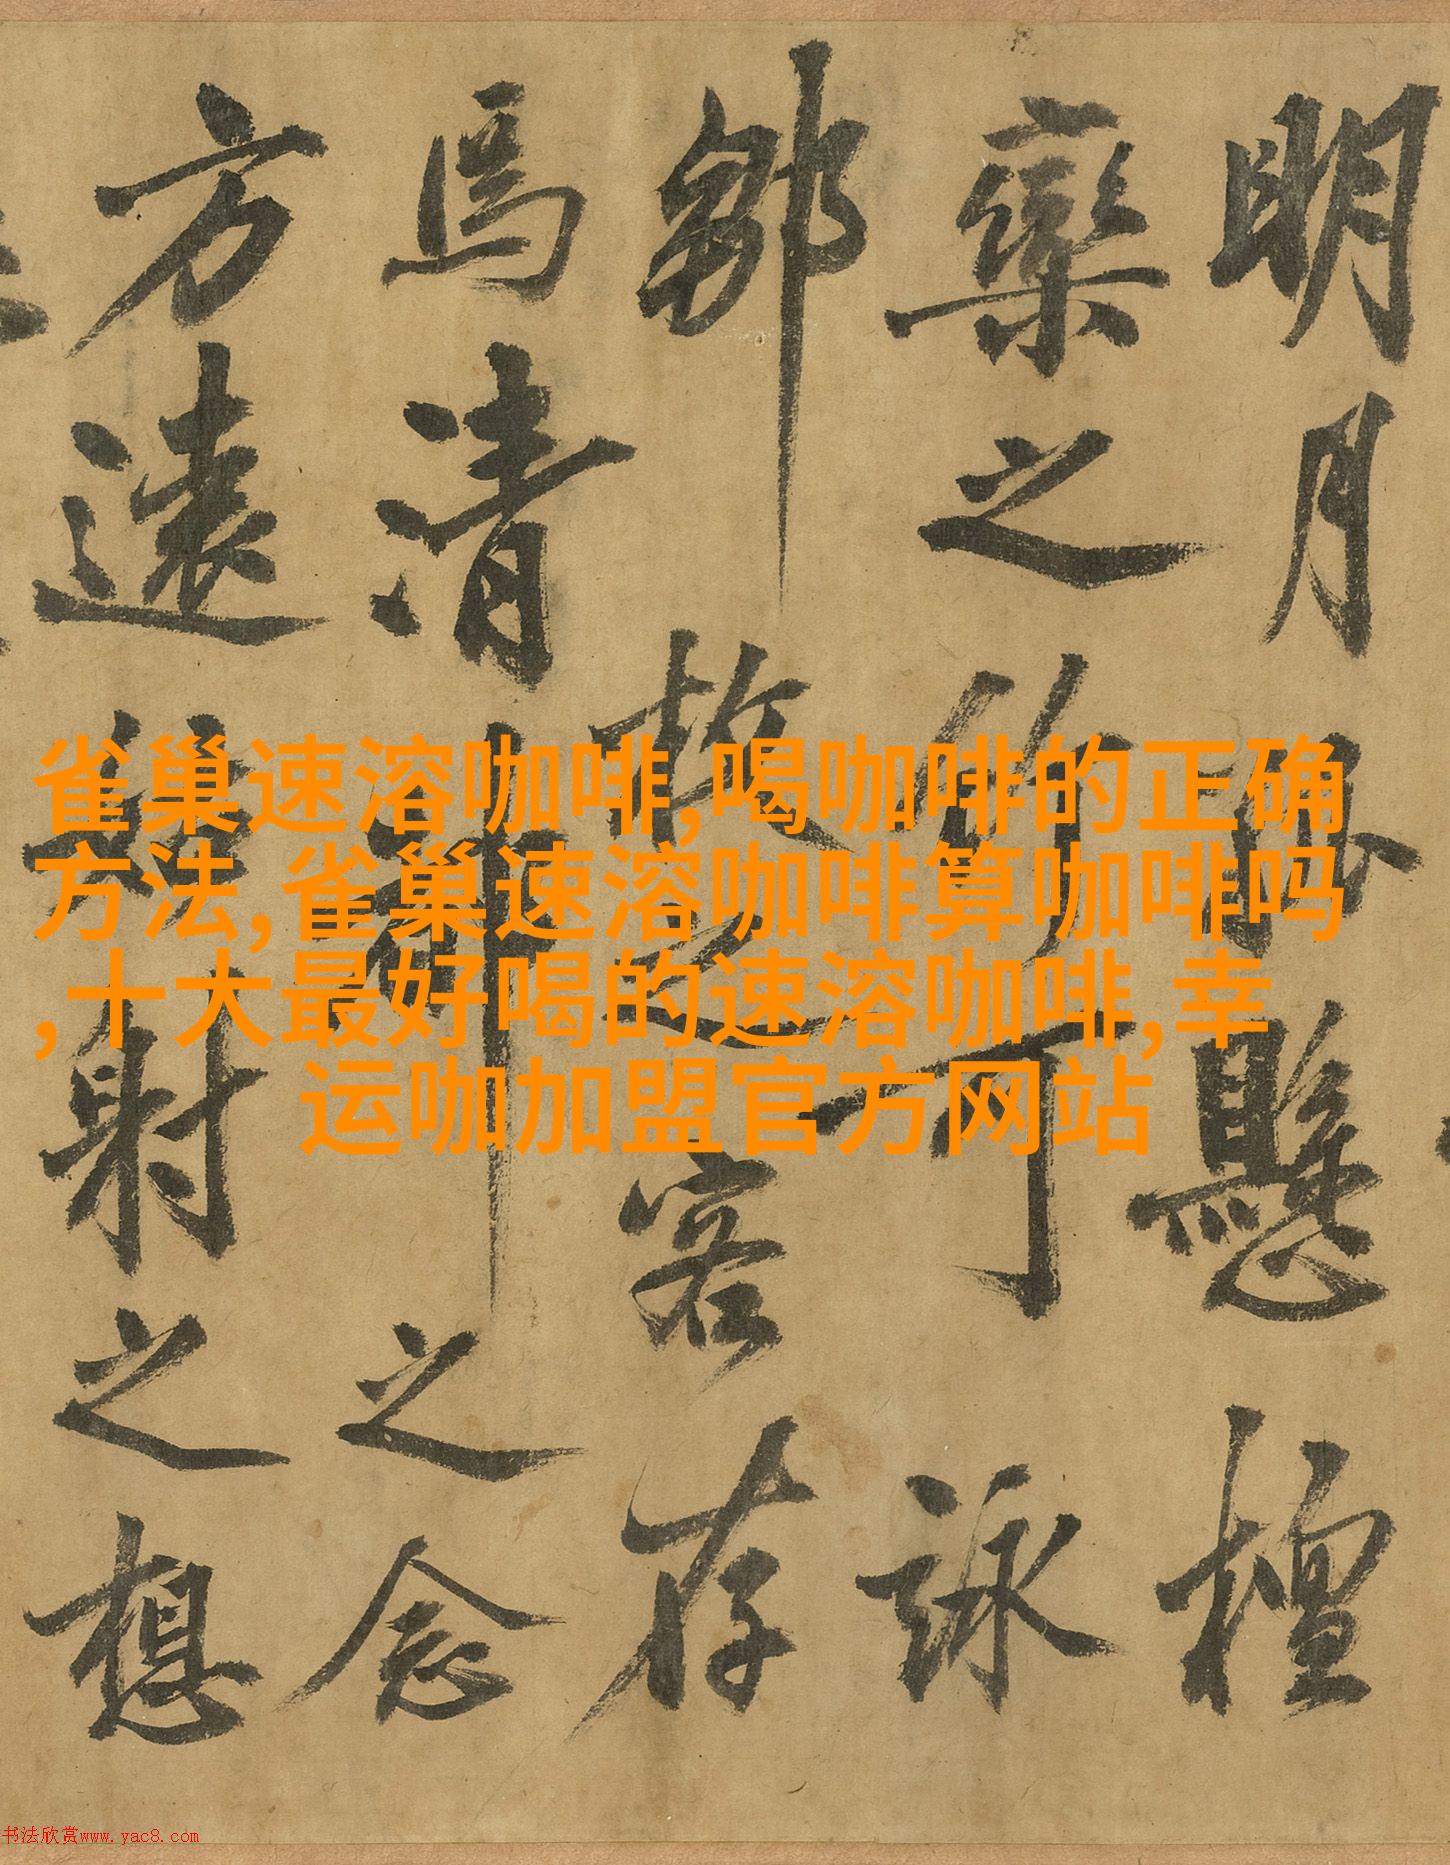 明月懸檀
欒之竹可詠
鄒枚之客存
焉清之念
方遠射之想
雀巢速溶咖啡,喝咖啡的正确
方法,雀巢速溶咖啡算咖啡吗
,十大最好喝的速溶咖啡,幸
运咖加盟官方网站
书法欣赏www.yac8.com